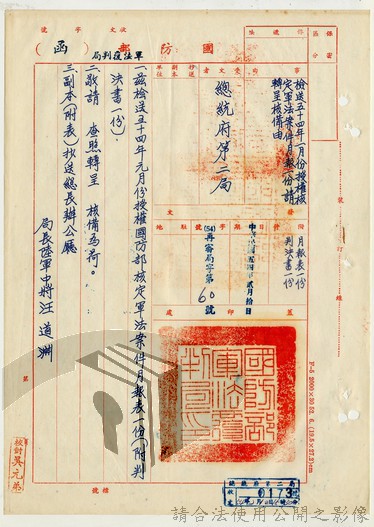 國防部 (函)
軍法覆判局
收文
字
號
檢送五十四年一月份授權核
定軍法案件月報表一份請
轉呈核備由
總統府第二局
月報表一份
判決書一份
中華民國五四年貳月拾日
(54)再審局字第60號
一、茲檢送五十四年元月份授權國防部核定軍法案件月報表一份(附判
決書一份)。
二、敬請 查照轉呈 核備為荷。
三、副本(附表)抄送總長辦公廳
局長陸軍中將汪道淵
國防部軍法覆判局印
校對吳元弟
總統府第二局
收文
0173
請合法使用公開之影像